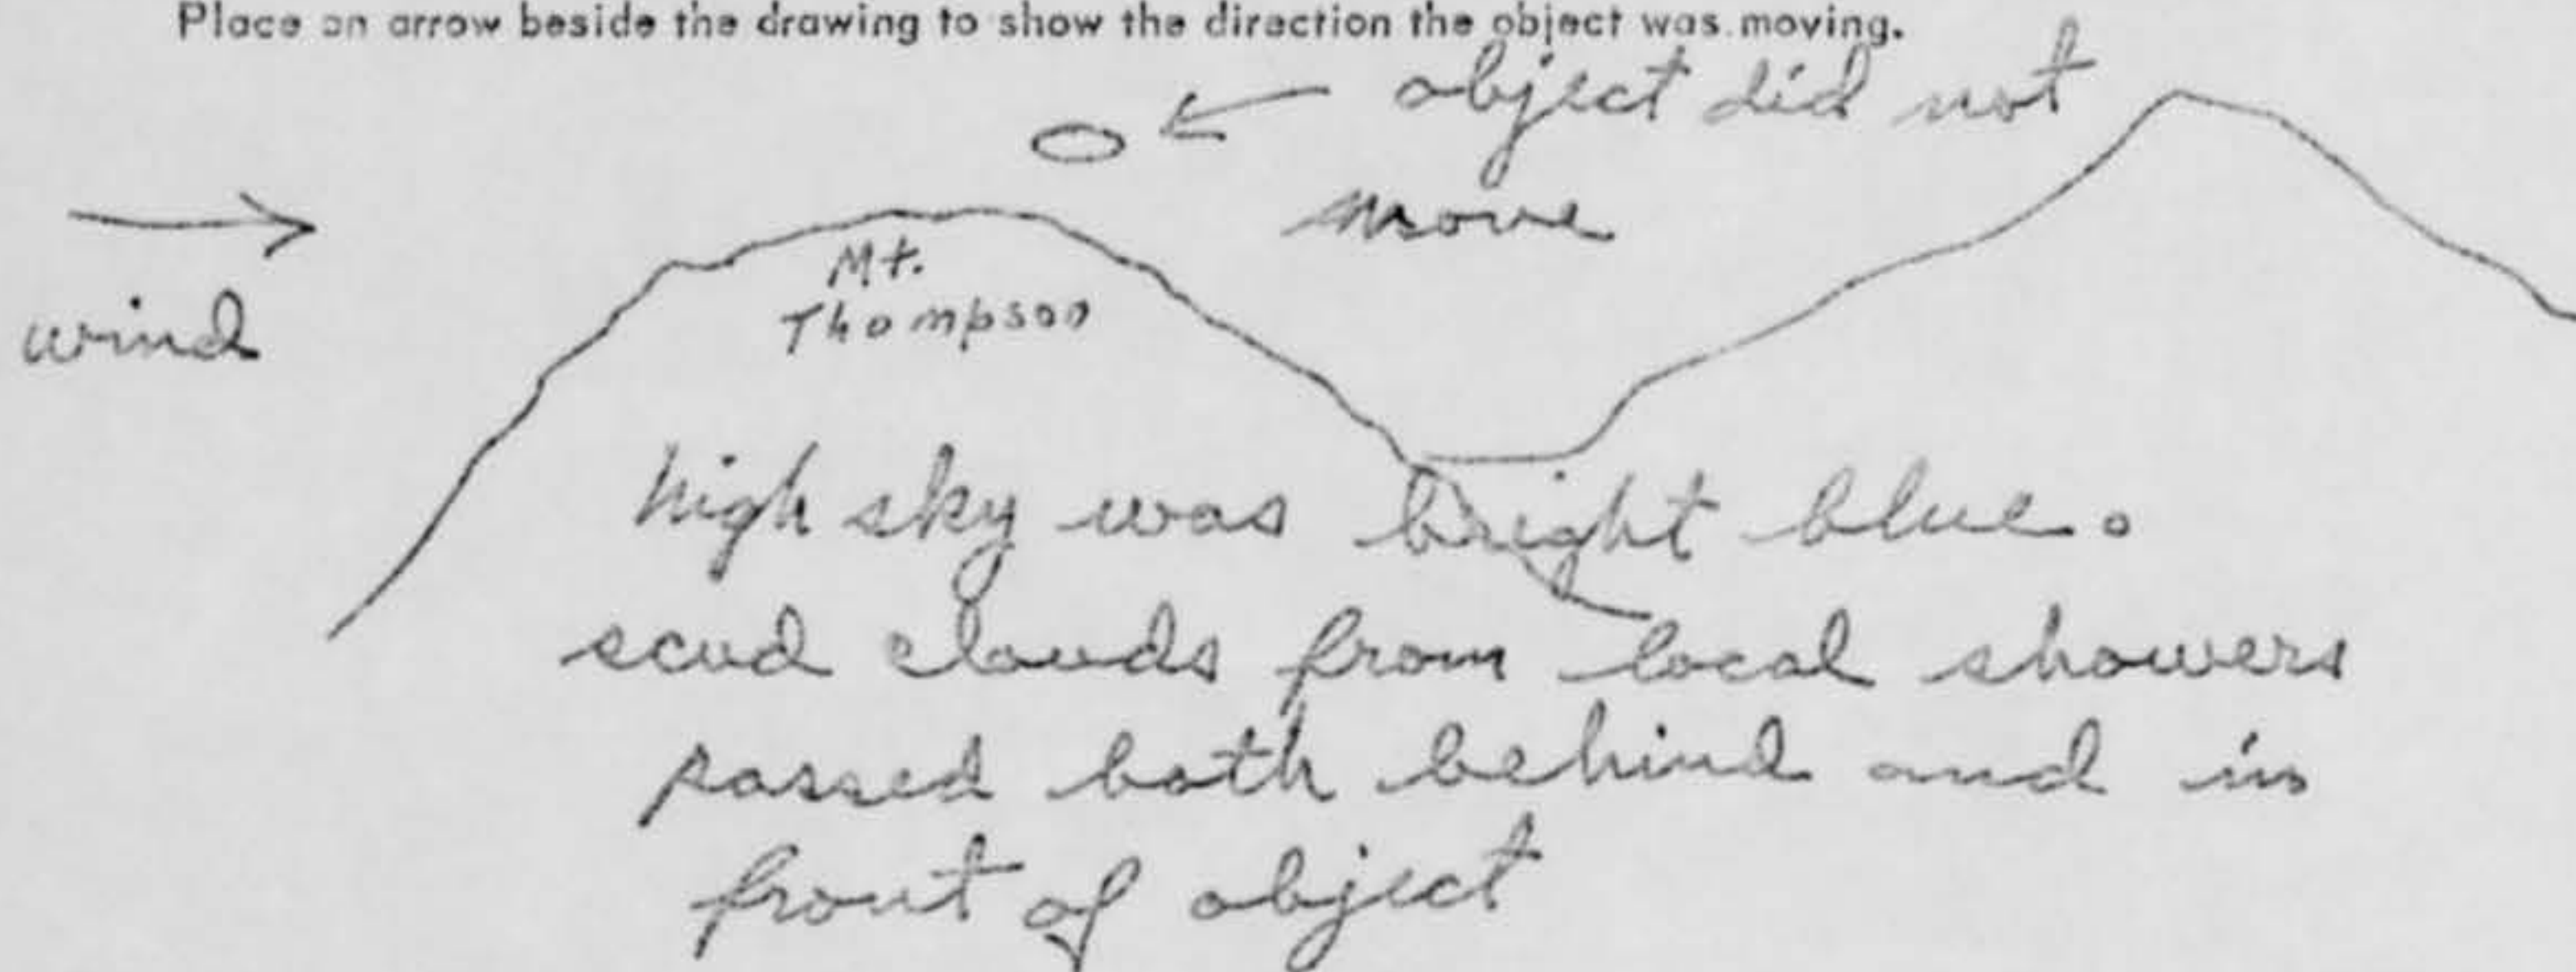 Place an arrow beside the drawing to show the direction the object was moving.
object did not
move
wind
Mt.
Thompson
high sky was bright blue.
scud clouds from local showers
passed both behind and in
front of object